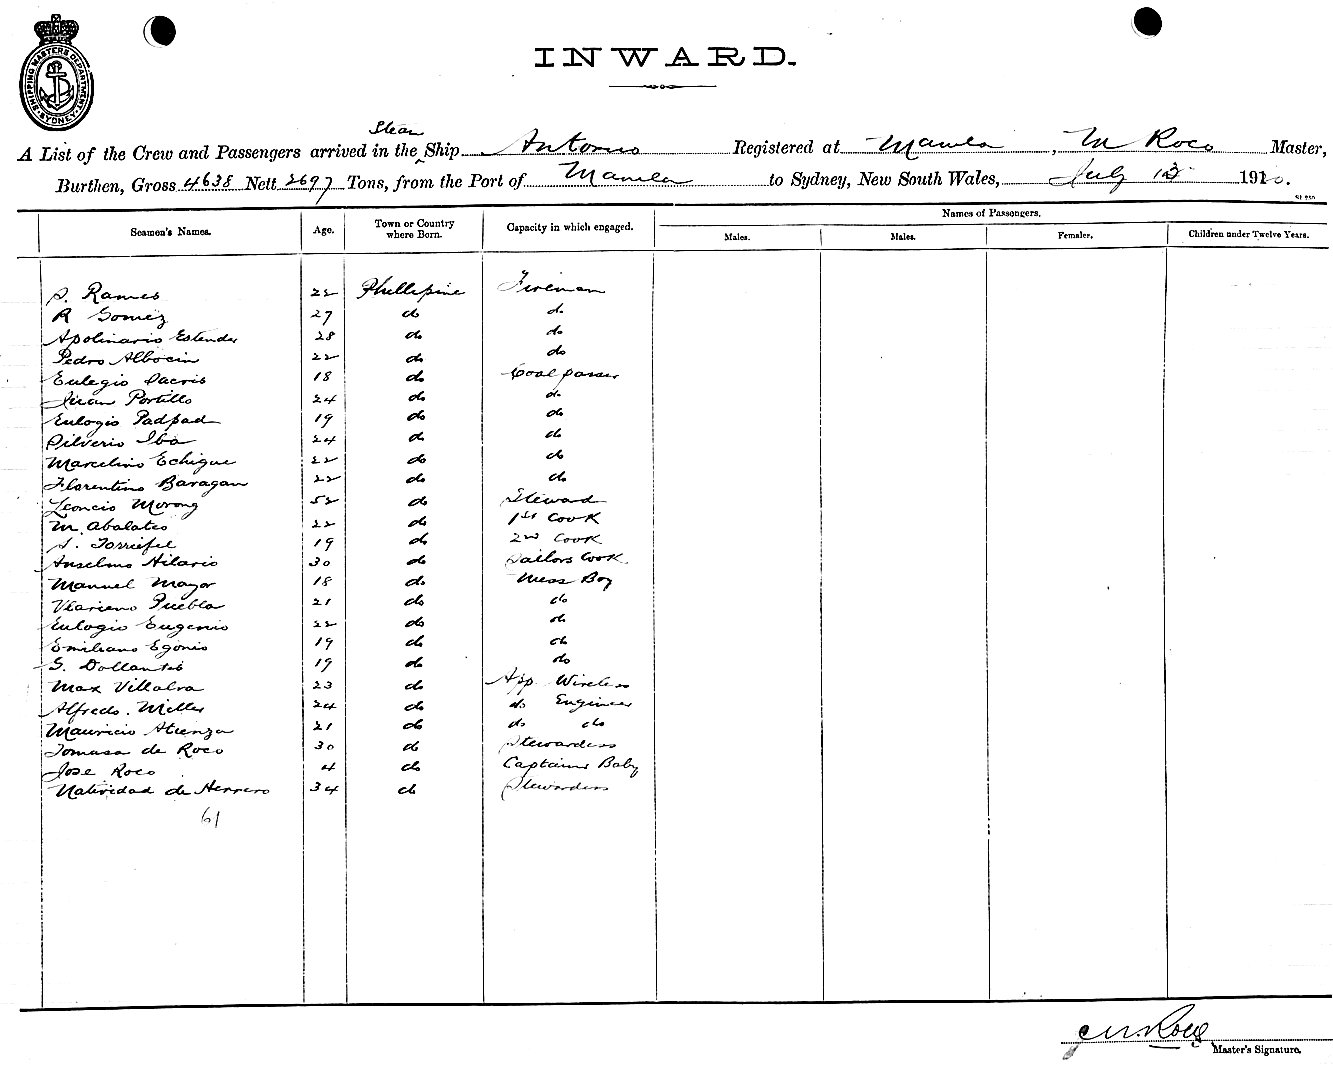 SHIPPING MASTERS DEPARTMENT SYDNEY
INWARD.
Steam
A List of the Crew and Passengers arrived in the Ship Antonio Registered at Manila, M Roco Master,
Burthen, Gross 4638 Nett 2697 Tons, from the Port of Manila to Sydney, New South Wales, July 13 1920.
Names of Passengers.
Seamen's Names. Age. Town or Country where Born. Capacity in which engaged. Males. Males. Females. Children under Twelve Years.
S. Ramos 22 Phillipine Fireman
R Gomez 27 do do
Apolinario Estender 28 do do
Pedro Albocin 22 do do
Eulegio Sacris 18 do Coal passer
Juan Portillo 24 do do
Eulogio Padpad 19 do do
Silverio Iba 24 do do
Marcelino Echigue 22 do do
Florentino Baragan 22 do do
Leoncio Morong 52 do Steward
M. Abalates 22 do 1st Cook
S. Torrefiel 19 do 2nd Cook
Anselmo Hilario 30 do Sailors Cook
Manuel Mayor 18 do Mess Boy
Puebla 21 do do
Eulogio Eugenio 22 do do
Emiliano Egonio 19 do do
G. Dollantes 19 do do
Max Villalva 23 do App Wireless
Alfredo. Miller 24 do do Engineer
Mauricio Atienza 21 do do do
Tomasa de Roco 30 do Stewardess
Jose Roco 4 do Captains Baby
Natividad de Herrero 34 do Stewardess
61
M Roco
Master's Signature.